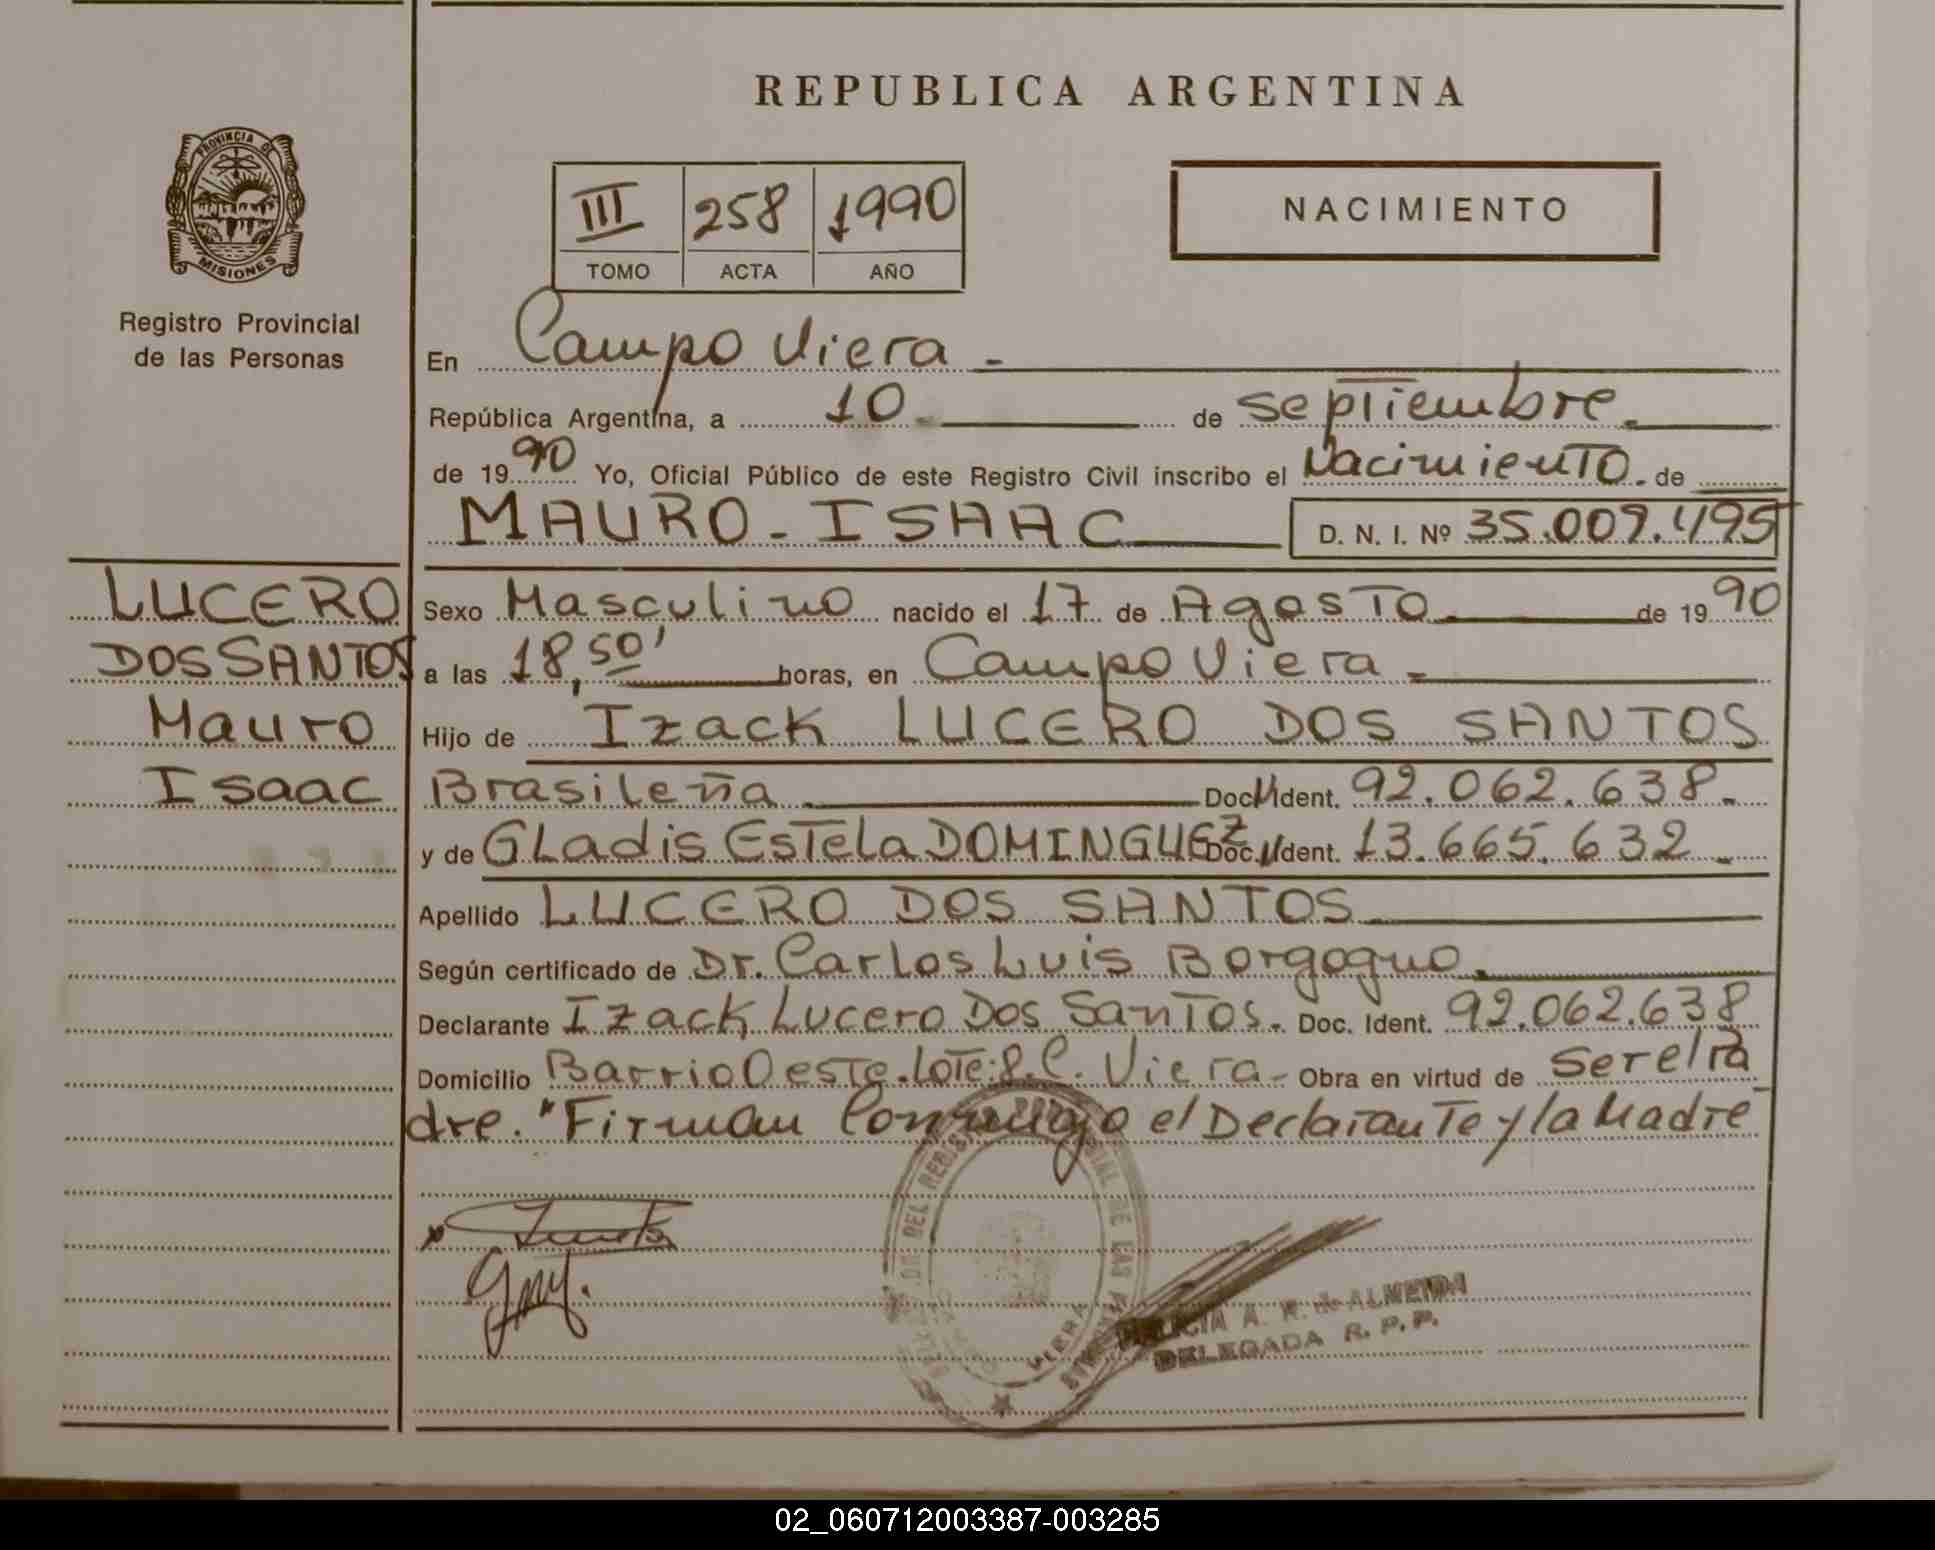 REPUBLICA ARGENTINA
PROVINCIA DE
MISIONES
Registro Provincial
de las Personas
III 258 1990
TOMO ACTA AÑO
NACIMIENTO
En Campo Viera -
República Argentina, a 10 de septiembre
de 1990 Yo, Oficial Público de este Registro Civil inscribo el Nacimiento de
MAURO - ISAAC D. N. I. Nº 35.009.495
LUCERO
DOS SANTOS
Mauro
Isaac
Sexo Masculino nacido el 17 de Agosto de 1990
a las 18,50' horas, en Campo Viera
Hijo de Izack LUCERO DOS SANTOS
Brasileña Doc. Ident. 92.062.638.
y de GLadis EsTeLa DOMINGUEZ Doc. Ident. 13.665.632
Apellido LUCERO DOS SANTOS
Según certificado de Dr. CarLos Luis Borgogno.
Declarante Izack Lucero Dos SanTos. Doc. Ident. 92.062.638
Domicilio Barrio OesTe. LoTe: 8. C. Viera - Obra en virtud de Ser el Pa
dre. "Firman Conmigo el DeclaranTe y la Madre
DEL REGISTRO PROVINCIAL DE LAS PERSONAS
VIERA
A. R. de ALMEIDA
DELEGADA R. P. P.
02_060712003387-003285